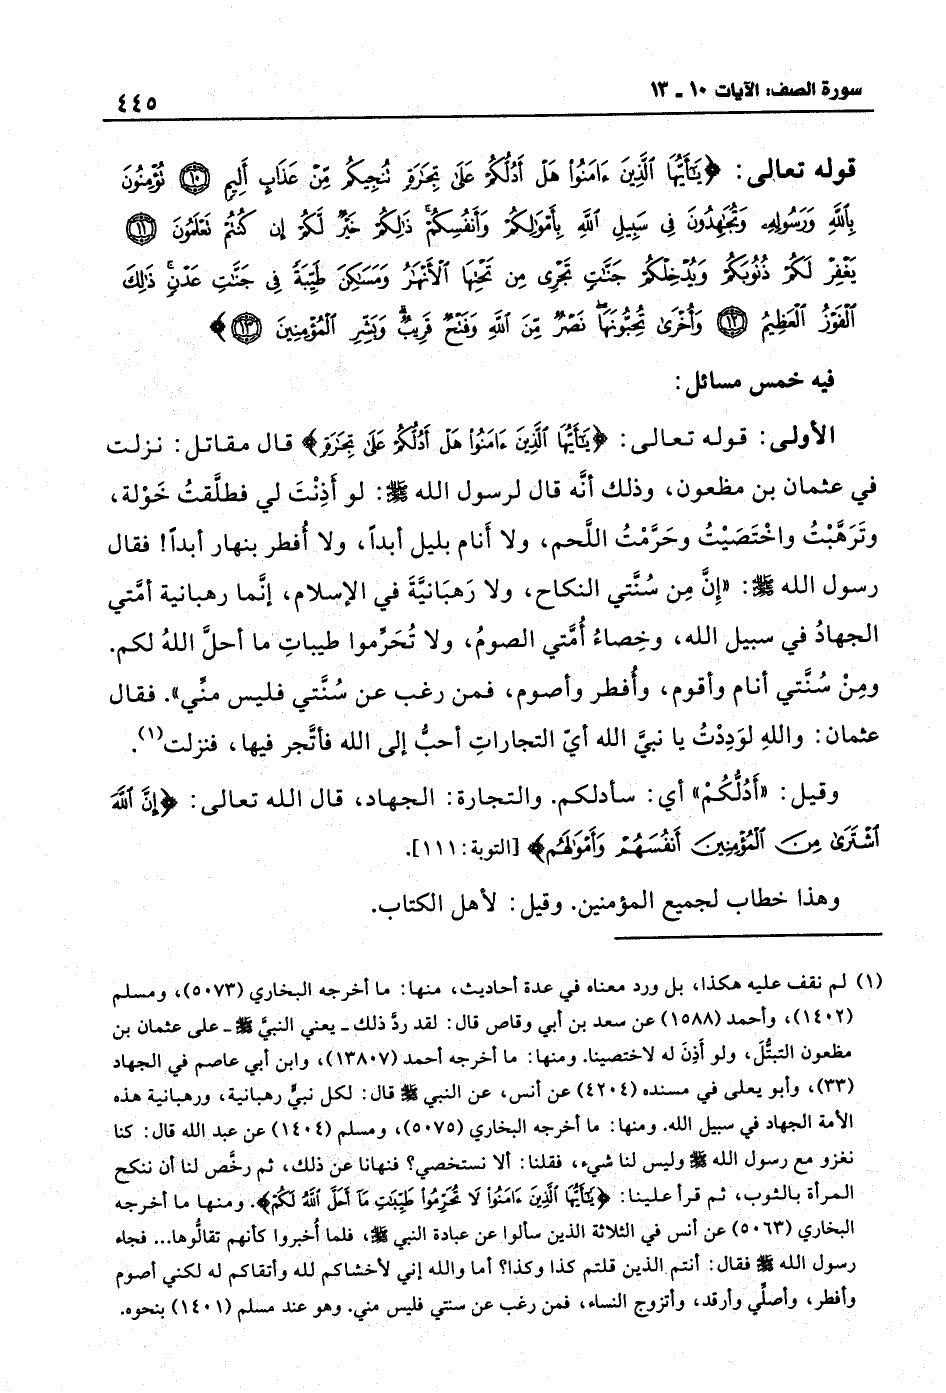 سورة الصف: الآيات ١٠ ـ ١٣
٤٤٥
قوله تعالى: ﴿يَٰٓأَيُّهَا ٱلَّذِينَ ءَامَنُواْ هَلۡ أَدُلُّكُمۡ عَلَىٰ تِجَٰرَةٖ تُنجِيكُم مِّنۡ عَذَابٍ أَلِيمٖ ١٠ تُؤۡمِنُونَ
بِٱللَّهِ وَرَسُولِهِۦ وَتُجَٰهِدُونَ فِي سَبِيلِ ٱللَّهِ بِأَمۡوَٰلِكُمۡ وَأَنفُسِكُمۡۚ ذَٰلِكُمۡ خَيۡرٞ لَّكُمۡ إِن كُنتُمۡ تَعۡلَمُونَ ١١
يَغۡفِرۡ لَكُمۡ ذُنُوبَكُمۡ وَيُدۡخِلۡكُمۡ جَنَّٰتٖ تَجۡرِي مِن تَحۡتِهَا ٱلۡأَنۡهَٰرُ وَمَسَٰكِنَ طَيِّبَةٗ فِي جَنَّٰتِ عَدۡنٖۚ ذَٰلِكَ
ٱلۡفَوۡزُ ٱلۡعَظِيمُ ١٢ وَأُخۡرَىٰ تُحِبُّونَهَاۖ نَصۡرٞ مِّنَ ٱللَّهِ وَفَتۡحٞ قَرِيبٞۗ وَبَشِّرِ ٱلۡمُؤۡمِنِينَ ١٣﴾
فيه خمس مسائل:
الأولى: قوله تعالى: ﴿يَٰٓأَيُّهَا ٱلَّذِينَ ءَامَنُواْ هَلۡ أَدُلُّكُمۡ عَلَىٰ تِجَٰرَةٖ﴾ قال مقاتل: نزلت
في عثمان بن مظعون، وذلك أنَّه قال لرسول الله ﷺ: لو أَذِنْتَ لي فطلَّقتُ خَوْلة،
وتَرَهَّبْتُ واخْتَصَيْتُ وحَرَّمْتُ اللَّحم، ولا أَنام بليل أبداً، ولا أُفطر بنهار أبداً! فقال
رسول الله ﷺ: «إِنَّ مِن سُنَّتي النكاح، ولا رَهبَانيَّةَ في الإسلام، إنَّما رهبانية أمَّتي
الجهادُ في سبيل الله، وخِصاءُ أُمَّتي الصومُ، ولا تُحَرِّموا طيباتِ ما أحلَّ اللهُ لكم.
ومِنْ سُنَّتي أنام وأقوم، وأُفطر وأصوم، فمن رغب عن سُنَّتي فليس منِّي». فقال
عثمان: واللهِ لوَدِدْتُ يا نبيَّ الله أيّ التجاراتِ أحبُّ إلى الله فأتَّجر فيها، فنزلت(١).
وقيل: «أَدُلُّكُمْ» أي: سأدلكم. والتجارة: الجهاد، قال الله تعالى: ﴿إِنَّ ٱللَّهَ
ٱشۡتَرَىٰ مِنَ ٱلۡمُؤۡمِنِينَ أَنفُسَهُمۡ وَأَمۡوَٰلَهُم﴾ [التوبة: ١١١].
وهذا خطاب لجميع المؤمنين. وقيل: لأهل الكتاب.
(١) لم نقف عليه هكذا، بل ورد معناه في عدة أحاديث، منها: ما أخرجه البخاري (٥٠٧٣)، ومسلم
(١٤٠٢)، وأحمد (١٥٨٨) عن سعد بن أبي وقاص قال: لقد ردَّ ذلك ـ يعني النبيَّ ﷺ ـ على عثمان بن
مظعون التبتُّلَ، ولو أَذِنَ له لاختصينا. ومنها: ما أخرجه أحمد (١٣٨٠٧)، وابن أبي عاصم في الجهاد
(٣٣)، وأبو يعلى في مسنده (٤٢٠٤) عن أنس، عن النبي ﷺ قال: لكل نبيٍّ رهبانية، ورهبانية هذه
الأمة الجهاد في سبيل الله. ومنها: ما أخرجه البخاري (٥٠٧٥)، ومسلم (١٤٠٤) عن عبد الله قال: كنا
نغزو مع رسول الله ﷺ وليس لنا شيء، فقلنا: ألا نستخصي؟ فنهانا عن ذلك، ثم رخَّص لنا أن ننكح
المرأة بالثوب، ثم قرأ علينا: ﴿يَٰٓأَيُّهَا ٱلَّذِينَ ءَامَنُواْ لَا تُحَرِّمُواْ طَيِّبَٰتِ مَآ أَحَلَّ ٱللَّهُ لَكُمۡ﴾. ومنها ما أخرجه
البخاري (٥٠٦٣) عن أنس في الثلاثة الذين سألوا عن عبادة النبي ﷺ، فلما أُخبروا كأنهم تقالُّوها... فجاء
رسول الله ﷺ فقال: أنتم الذين قلتم كذا وكذا؟ أما والله إني لأخشاكم لله وأتقاكم له لكني أصوم
وأفطر، وأصلِّي وأرقد، وأتزوج النساء، فمن رغب عن سنتي فليس مني. وهو عند مسلم (١٤٠١) بنحوه.